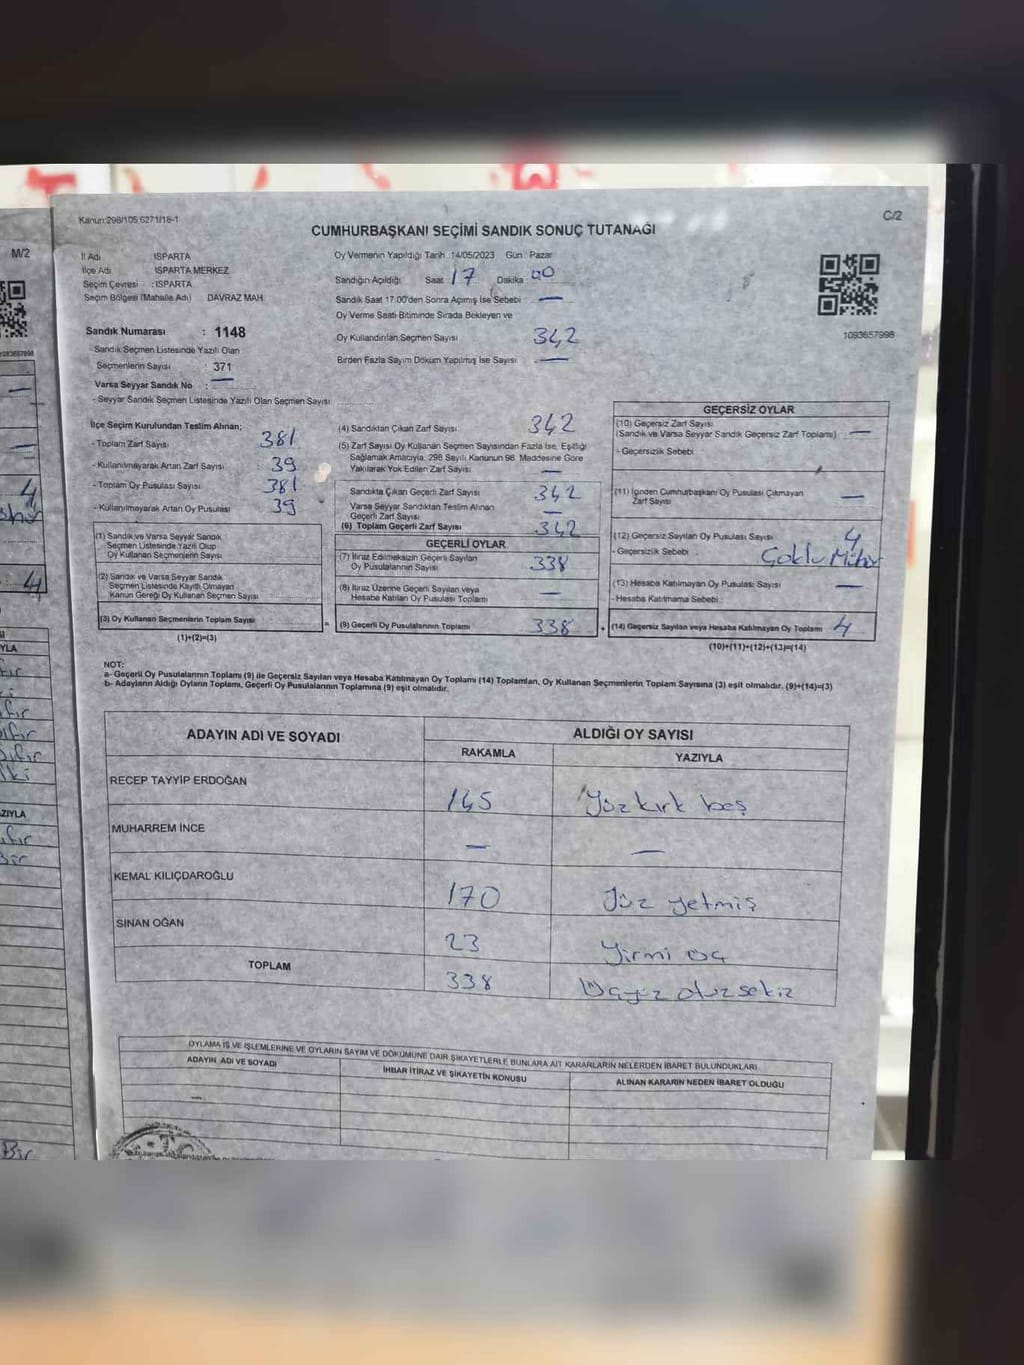 Kanun:298/105,6271/18-1
C/2
CUMHURBAŞKANI SEÇİMİ SANDIK SONUÇ TUTANAĞI
M/2
İl Adı ISPARTA
İlçe Adı ISPARTA MERKEZ
Seçim Çevresi : ISPARTA
Seçim Bölgesi (Mahalle Adı) DAVRAZ MAH.
Sandık Numarası : 1148
- Sandık Seçmen Listesinde Yazılı Olan
Seçmenlerin Sayısı : 371
Varsa Seyyar Sandık No : —
- Seyyar Sandık Seçmen Listesinde Yazılı Olan Seçmen Sayısı
Oy Vermenin Yapıldığı Tarih 14/05/2023 Gün : Pazar
Sandığın Açıldığı Saat 17 Dakika : 00
Sandık Saat 17.00'den Sonra Açımış İse Sebebi —
Oy Verme Saati Bitiminde Sırada Bekleyen ve
Oy Kullandırılan Seçmen Sayısı 342
Birden Fazla Sayım Döküm Yapılmış İse Sayısı —
1093657998
İlçe Seçim Kurulundan Teslim Alınan;
- Toplam Zarf Sayısı : 381
- Kullanılmayarak Artan Zarf Sayısı : 39
- Toplam Oy Pusulası Sayısı : 381
- Kullanılmayarak Artan Oy Pusulası : 39
(1) Sandık ve Varsa Seyyar Sandık
Seçmen Listesinde Yazılı Olup
Oy Kullanan Seçmenlerin Sayısı
(2) Sandık ve Varsa Seyyar Sandık
Seçmen Listesinde Kayıtlı Olmayan
Kanun Gereği Oy Kullanan Seçmen Sayısı
(3) Oy Kullanan Seçmenlerin Toplam Sayısı
(1)+(2)=(3)
(4) Sandıktan Çıkan Zarf Sayısı 342
(5) Zarf Sayısı Oy Kullanan Seçmen Sayısından Fazla İse, Eşitliği
Sağlamak Amacıyla, 298 Sayılı Kanunun 98. Maddesine Göre
Yakılarak Yok Edilen Zarf Sayısı —
Sandıkta Çıkan Geçerli Zarf Sayısı 342
Varsa Seyyar Sandıktan Teslim Alınan
Geçerli Zarf Sayısı —
(6) Toplam Geçerli Zarf Sayısı 342
GEÇERLİ OYLAR
(7) İtiraz Edilmeksizin Geçerli Sayılan
Oy Pusulalarının Sayısı 338
(8) İtiraz Üzerine Geçerli Sayılan veya
Hesaba Katılan Oy Pusulası Toplamı —
= (9) Geçerli Oy Pusulalarının Toplamı 338 +
GEÇERSİZ OYLAR
(10) Geçersiz Zarf Sayısı
(Sandık ve Varsa Seyyar Sandık Geçersiz Zarf Toplamı) —
- Geçersizlik Sebebi :
(11) İçinden Cumhurbaşkanı Oy Pusulası Çıkmayan
Zarf Sayısı —
(12) Geçersiz Sayılan Oy Pusulası Sayısı 4
Geçersizlik Sebebi : Çoklu Mühür
(13) Hesaba Katılmayan Oy Pusulası Sayısı —
- Hesaba Katılmama Sebebi :
(14) Geçersiz Sayılan veya Hesaba Katılmayan Oy Toplamı 4
(10)+(11)+(12)+(13)=(14)
NOT:
a- Geçerli Oy Pusulalarının Toplamı (9) ile Geçersiz Sayılan veya Hesaba Katılmayan Oy Toplamı (14) Toplamları, Oy Kullanan Seçmenlerin Toplam Sayısına (3) eşit olmalıdır. (9)+(14)=(3)
b- Adayların Aldığı Oyların Toplamı, Geçerli Oy Pusulalarının Toplamına (9) eşit olmalıdır.
ADAYIN ADI VE SOYADI
ALDIĞI OY SAYISI
RAKAMLA YAZIYLA
RECEP TAYYİP ERDOĞAN 145 Yüz kırk beş
MUHARREM İNCE — —
KEMAL KILIÇDAROĞLU 170 Yüz yetmiş
SİNAN OĞAN 23 Yirmi üç
TOPLAM 338 Üçyüz otuz sekiz
OYLAMA İŞ VE İŞLEMLERİNE VE OYLARIN SAYIM VE DÖKÜMÜNE DAİR ŞİKAYETLERLE BUNLARA AİT KARARLARIN NELERDEN İBARET BULUNDUKLARI
ADAYIN ADI VE SOYADI İHBAR İTİRAZ VE ŞİKAYETİN KONUSU ALINAN KARARIN NEDEN İBARET OLDUĞU
—